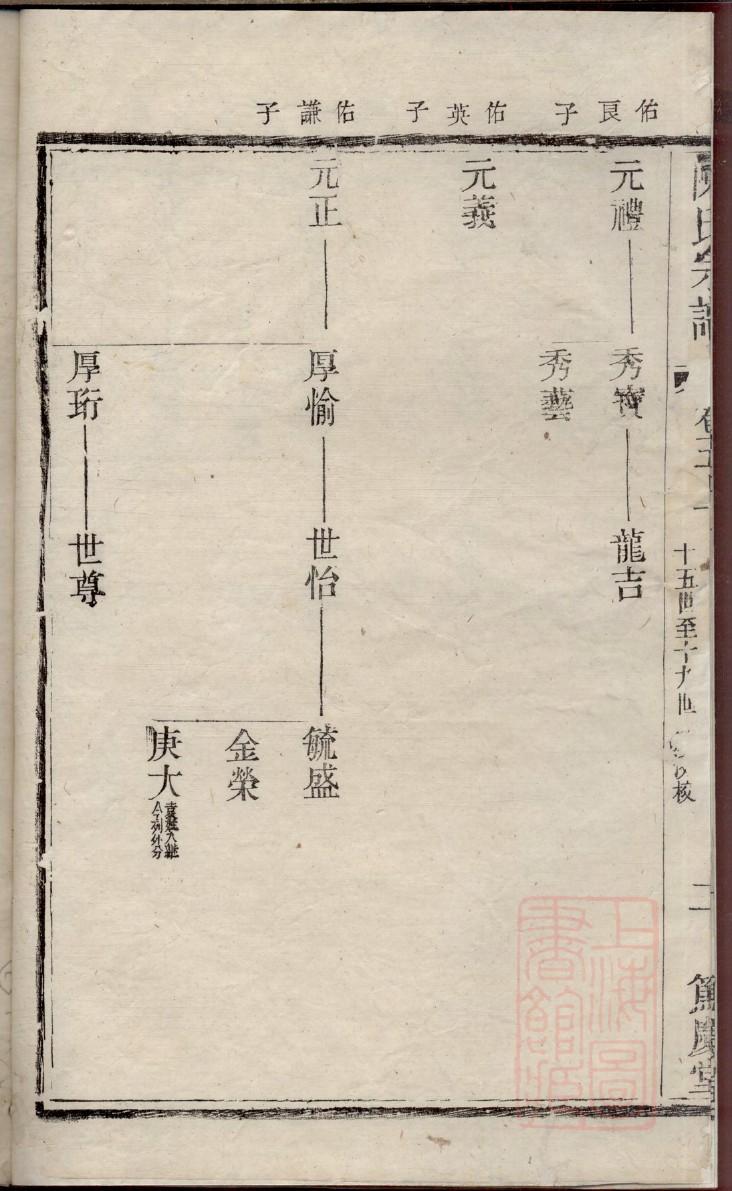 氏宗譜
十五世至十九世
核
二
篤慶堂
佑良子
佑英子
佑謙子
元禮
元義
元正
秀寶
秀藝
厚愉
厚珩
龍吉
世怡
世尊
毓盛
金榮
庚大
上海圖
書館藏